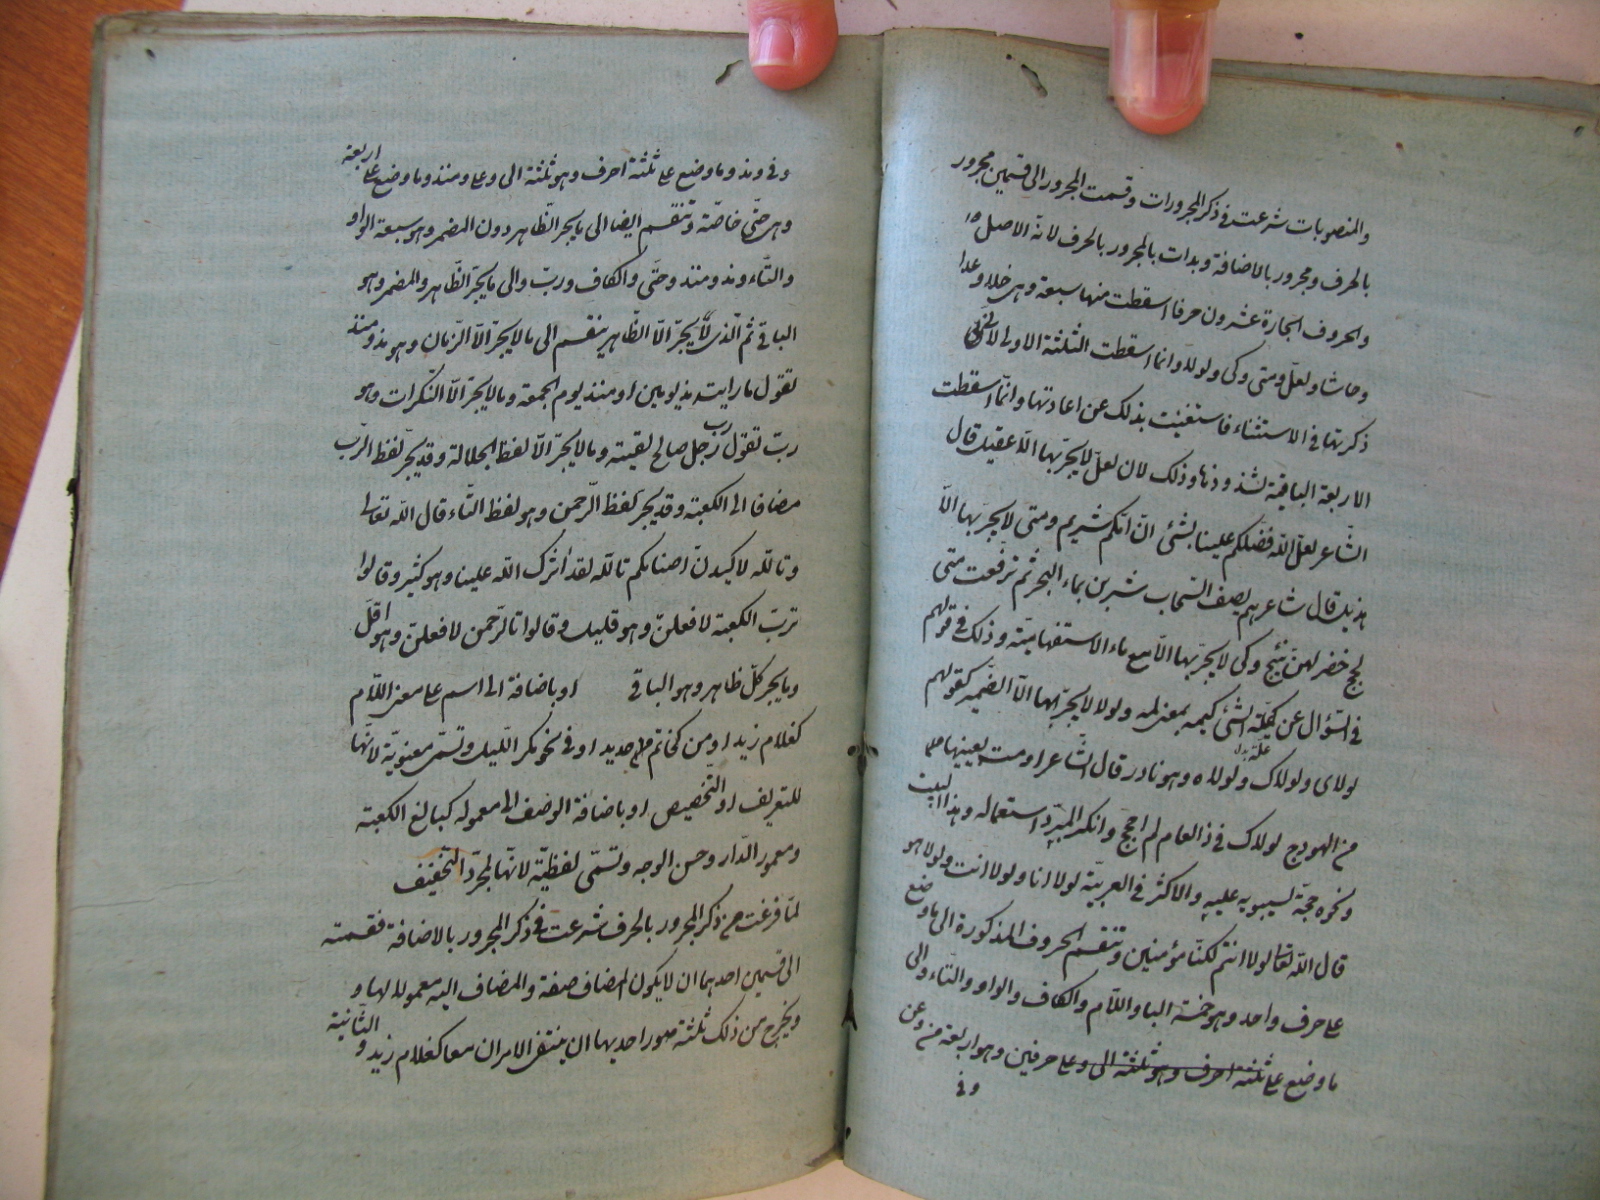 والمنصوبات شرعت في ذكر المجرورات وقسمت المجرور الى قسمين مجرور
بالحرف ومجرور بالاضافة وبدات بالمجرور بالحرف لانه الاصل
والحروف الجارة عشرون حرفا اسقطت منها سبعة وهي خلا وعدا
وحاشا ولعل ومتى وكي ولولا وانما اسقطت الثلثة الاول لاني
ذكرتها في الاستثناء فاستغنيت بذلك عن اعادتها وانما اسقطت
الاربعة الباقية لشذوذها وذلك لان لعل لا يجر بها الا عقيل قال
الشاعر لعل الله فضلكم علينا بشئ ان امكم شريم ومتى لا يجر بها الا
هذيل قال شاعرهم يصف السحاب شربن بماء البحر ثم ترفعت متى
لجج خضر لهن نئيج وكي لا يجر بها الا مع ماء الاستفهامية وذلك في قولهم
في السؤال عن علة الشئ كيمه بمعنى لمه ولولا لا يجر بها الا الضمير كقولهم
لولاى ولولاك ولولاه وهو نادر قال الشاعر اومت بعينيها
من الهودج لولاك في ذا العام لم احجج وانكر المبرد استعماله وهذا البيت
ونحوه حجة لسيبويه عليه والاكثر في العربية لولا انا ولولا انت ولولا هو
قال الله تعالى لولا انتم لكنا مؤمنين وتنقسم الحروف المذكورة الى ما وضع
على حرف واحد وهو خمسة البا واللام والكاف والواو والتاء والى
ما وضع على ثلثة احرف وهو ثلثة الى وعلى حرفين وهو اربعة من وعن
وفي
وفي ومذ وما وضع على ثلثة احرف وهو ثلثة الى وعلى ومنذ وما وضع على اربعة
وهي حتى خاصة وتنقسم ايضا الى ما يجر الظاهر دون المضمر وهو سبعة الواو
والتاء ومذ ومنذ وحتى والكاف ورب والى ما يجر الظاهر والمضمر وهو
الباقي ثم الذى لا يجر الا الظاهر ينقسم الى ما لا يجر الا الزمان وهو مذ ومنذ
تقول ما رايته مذ يومين او منذ يوم الجمعة وما لا يجر الا النكرات وهو
رب تقول رب رجل صالح لقيته وما لا يجر الا لفظ الجلالة وقد يجر لفظ الرب
مضافا الى الكعبة وقد يجر لفظ الرحمن وهو لفظ التاء قال الله تعالى
وتالله لاكيدن اصنامكم تالله لقد اثرك الله علينا وهو كثير وقالوا
ترب الكعبة لافعلن وهو قليل وقالوا تالرحمن لافعلن وهو اقل
وما يجر كل ظاهر وهو الباقي او باضافة الى اسم على معنى اللام
كغلام زيد او من كخاتم حديد او في نحو مكر الليل وتسمى معنوية لانها
للتعريف او التخصيص او باضافة الوصف الى معموله كبالغ الكعبة
ومعمور الدار وحسن الوجه وتسمى لفظية لانها لمجرد التخفيف
لما فرغت من ذكر المجرور بالحرف شرعت في ذكر المجرور بالاضافة فقسمته
الى قسمين احدهما ان لا يكون المضاف صفة والمضاف اليه معمولا لها و
ويخرج من ذلك ثلثة صور احديها ان ينتفى الامران معا كغلام زيد والثانية